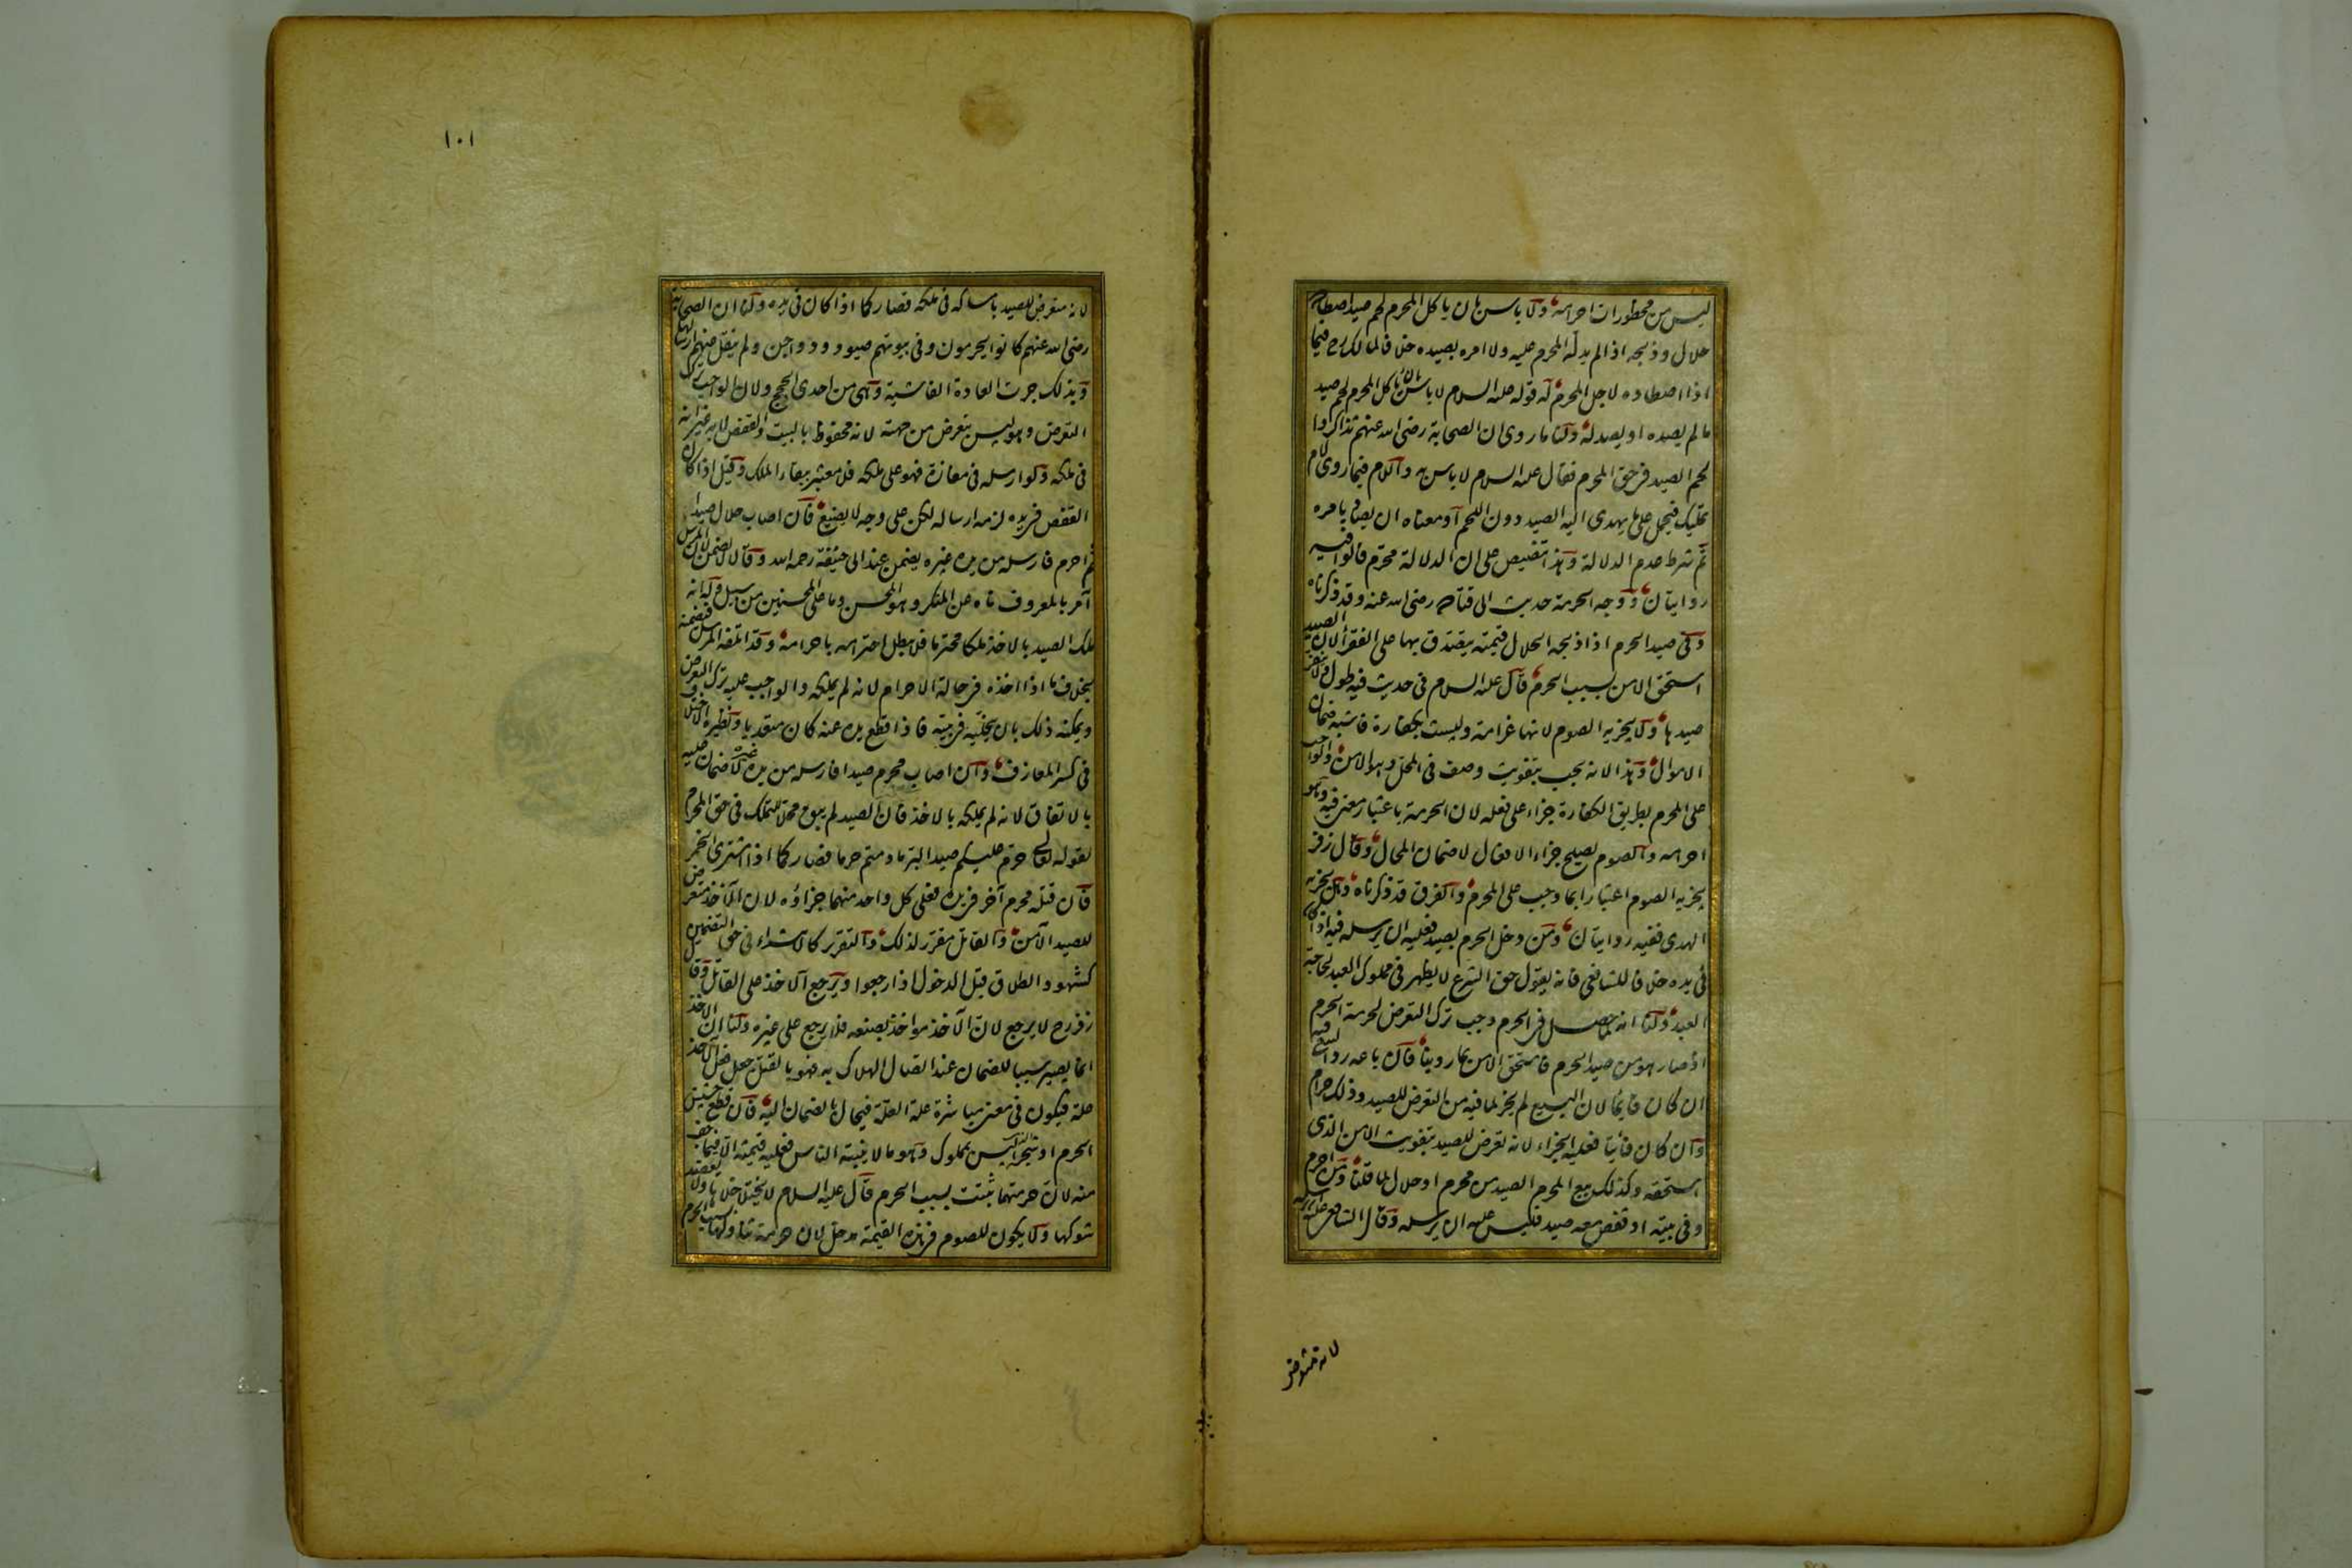 ليس من محظورات احرامه ولا باس بان ياكل المحرم لحم صيد اصطاده
حلال وذبحه اذا لم يدل المحرم عليه ولا امره بصيده خلافا لمالك رح فيما
اذا اصطاده لاجل المحرم له قوله عليه السلام لا باس بان ياكل المحرم لحم صيد
ما لم يصده او يصد له ولنا ما روى ان الصحابة رضى الله عنهم تذاكروا
لحم الصيد فى حق المحرم فقال عليه السلام لا باس به واللام فيما روى لام
تمليك فيحمل على ان يهدى اليه الصيد دون اللحم او معناه ان يصاد بامره
ثم شرط عدم الدلالة وهذا تنصيص على ان الدلالة محرم قالوا فيه
روايتان ووجه الحرمة حديث ابى قتادة رضى الله عنه وقد ذكرناه
وفى صيد الحرم اذا ذبحه الحلال قيمته يتصدق بها على الفقراء لان الصيد
استحق الامن بسبب الحرم قال عليه السلام فى حديث فيه طول ولا ينفر
صيدها ولا يجزيه الصوم لانها غرامة وليست بكفارة فاشبه ضمان
الاموال وهذا لانه يجب بتفويت وصف فى المحل وهو الامن والواجب
على المحرم بطريق الكفارة جزاء على فعله لان الحرمة باعتبار معنى فيه وهو
احرامه والصوم يصلح جزاء الافعال لا ضمان المحال وقال زفر
يجزيه الصوم اعتبارا بما وجب على المحرم والفرق قد ذكرناه وهل يجزيه
الهدى ففيه روايتان ومن دخل الحرم بصيد فعليه ان يرسله فيه اذا كان
فى يده خلافا للشافعى فانه يقول حق الشرع لا يظهر فى مملوك العبد لحاجة
العبد ولنا انه لما حصل فى الحرم وجب ترك التعرض لحرمة الحرم
اذ صار هو من صيد الحرم فاستحق الامن بما روينا فان باعه رد البيع فيه
ان كان قايما لان البيع لم يجز لما فيه من التعرض للصيد وذلك حرام
وان كان فائتا فعليه الجزاء لانه تعرض للصيد بتفويت الامن الذى
استحقه وكذلك بيع المحرم الصيد من محرم او حلال لما قلنا ومن احرم
وفى بيته او قفص معه صيد فليس عليه ان يرسله وقال الشافعى عليه ان يرسله
لانه متعرض
١٠١
لانه متعرض للصيد بامساكه فى ملكه فصار كما اذا كان فى يده ولنا ان الصحابة
رضى الله عنهم كانوا يحرمون وفى بيوتهم صيود ودواجن ولم ينقل عنهم ارسالها
وبذلك جرت العادة الفاشية وهى من احدى الحجج ولان الواجب ترك
التعرض وهو ليس بتعرض من جهته لانه محفوظ بالبيت والقفص لا به غير انه
فى ملكه ولو ارسله فى مفازة فهو على ملكه فلا معتبر ببقاء الملك وقيل اذا كان
القفص فى يده لزمه ارساله لكن على وجه لا يضيع فان اصاب حلال صيدا
ثم احرم فارسله من يده غيره يضمن عند ابى حنيفة رحمه الله وقالا لا يضمن لان المرسل
آمر بالمعروف ناه عن المنكر وهو المحسن وما على المحسنين من سبيل وله انه
ملك الصيد بالاخذ ملكا محترما فلا يبطل احترامه باحرامه وقد اتلفه المرسل فيضمنه
بخلاف ما اذا اخذه فى حالة الاحرام لانه لم يملكه والواجب عليه ترك التعرض
ويمكنه ذلك بان يخليه فى بيته فاذا قطع يده عنه كان متعديا ونظيره الاختلاف
فى كسر المعازف وان اصاب محرم صيدا فارسله من يده غيره لا ضمان عليه
بالاتفاق لانه لم يملكه بالاخذ فان الصيد لم يبق محلا للتملك فى حق المحرم
لقوله تعالى حرم عليكم صيد البر ما دمتم حرما فصار كما اذا اشترى الخمر
فان قتله محرم آخر فى يده فعلى كل واحد منهما جزاؤه لان الآخذ متعرض
للصيد الآمن والقاتل مقرر لذلك والتقرير كالابتداء فى حق التضمين
كشهود الطلاق قبل الدخول اذا رجعوا ويرجع الآخذ على القاتل وقال
زفر رح لا يرجع لان الآخذ مواخذ بصنعه فلا يرجع على غيره ولنا ان الاخذ
انما يصير سببا للضمان عند اتصال الهلاك به فهو بالقتل جعل فعل الآخذ
علة فيكون فى معنى مباشرة علة العلة فيحال بالضمان اليه فان قطع حشيش
الحرم او شجرا ليس بمملوك وهو مما لا ينبته الناس فعليه قيمته الا فيما جف
منه لان حرمتهما ثبتت بسبب الحرم قال عليه السلام لا يختلى خلاها ولا يعضد
شوكها ولا يكون للصوم فى هذه القيمة مدخل لان حرمة تناولها بسبب الحرم